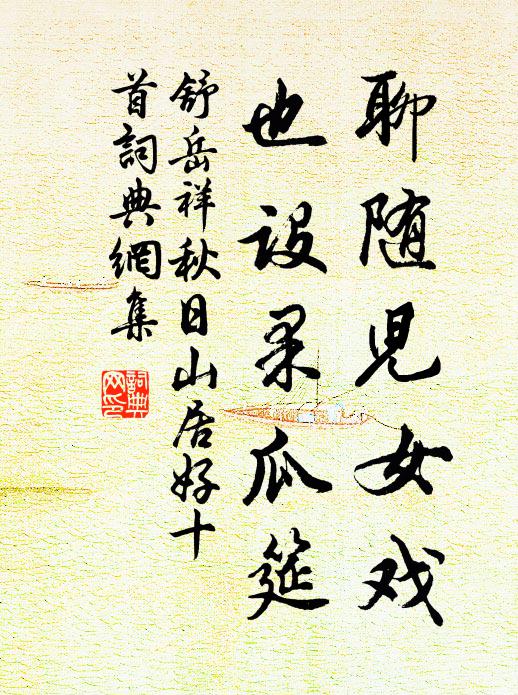 聊随児女戏
也设果瓜筵
舒岳祥秋日山居好十
首詞典網集
詞典
网印